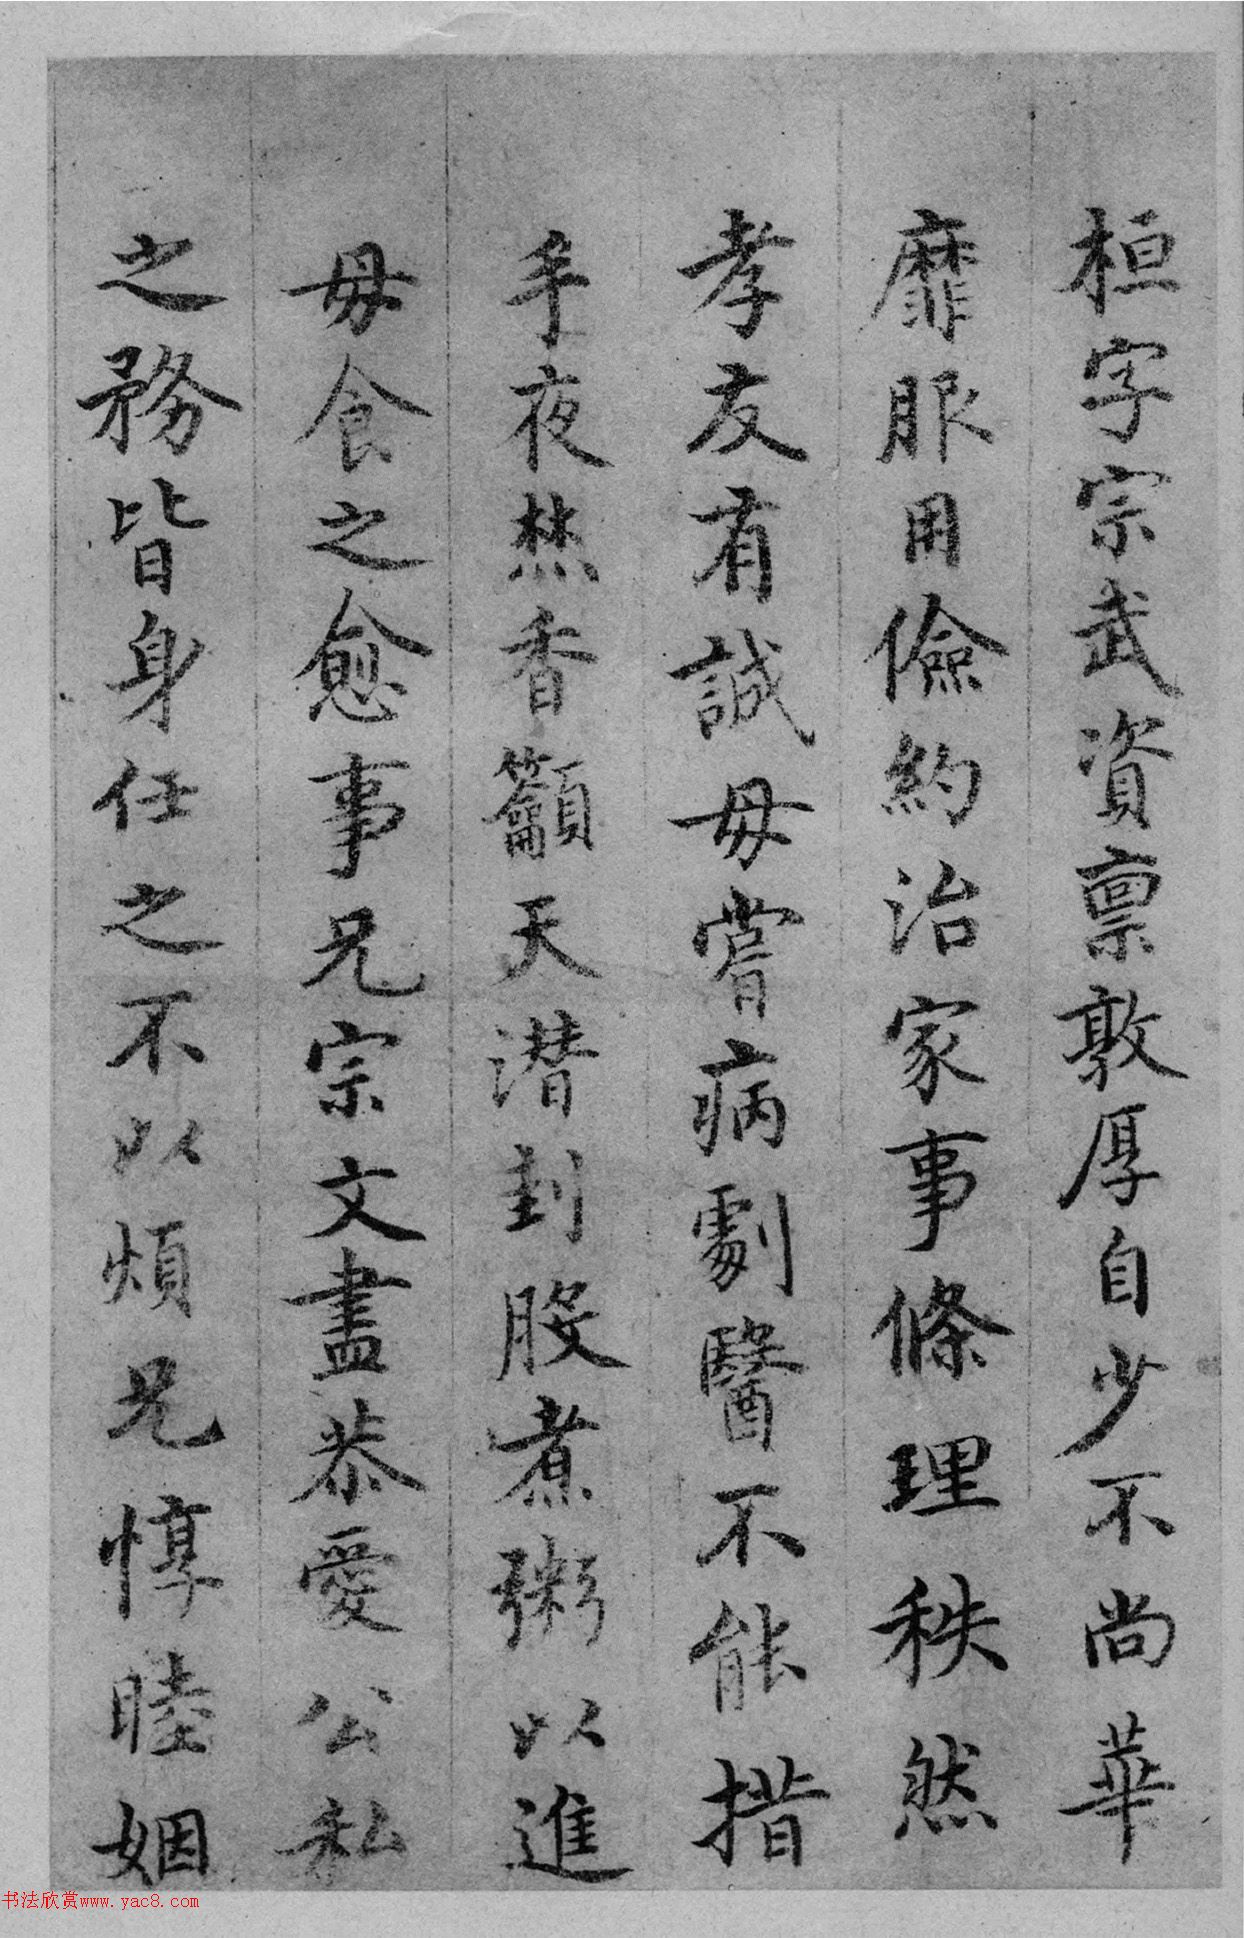 桓字宗武資禀敦厚自少不尚華
靡服用儉約治家事條理秩然
孝友有誠母嘗病劇醫不能措
手夜焚香籲天潜刲股煮粥以進
母食之愈事兄宗文盡恭愛公私
之務皆身任之不以煩兄惇睦姻
书法欣赏www.yac8.com